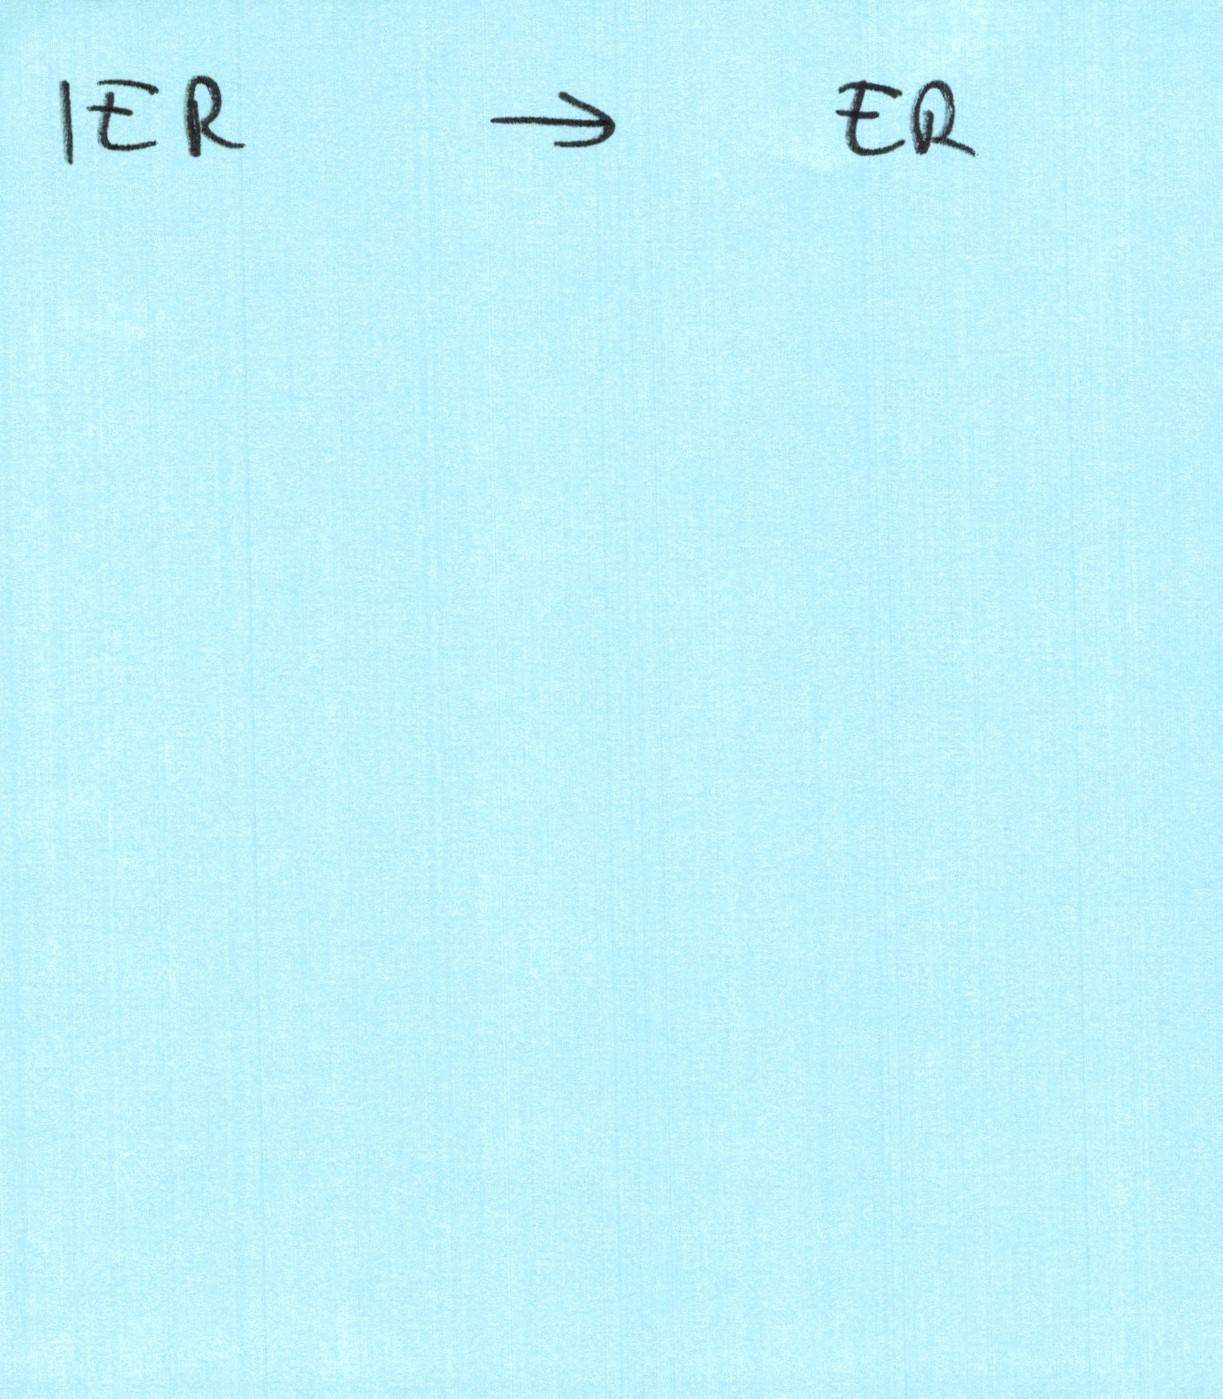 IER → ER